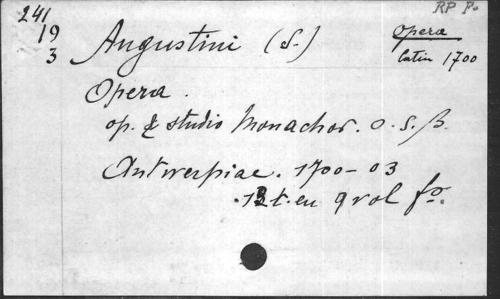 RP P.
241
19
3
Augustini (S.)
opera
latin 1700
Opera.
op. & studio Monachor. O. S. B.
Antverpiae. 1700-03
12 t. en 9 vol fo.